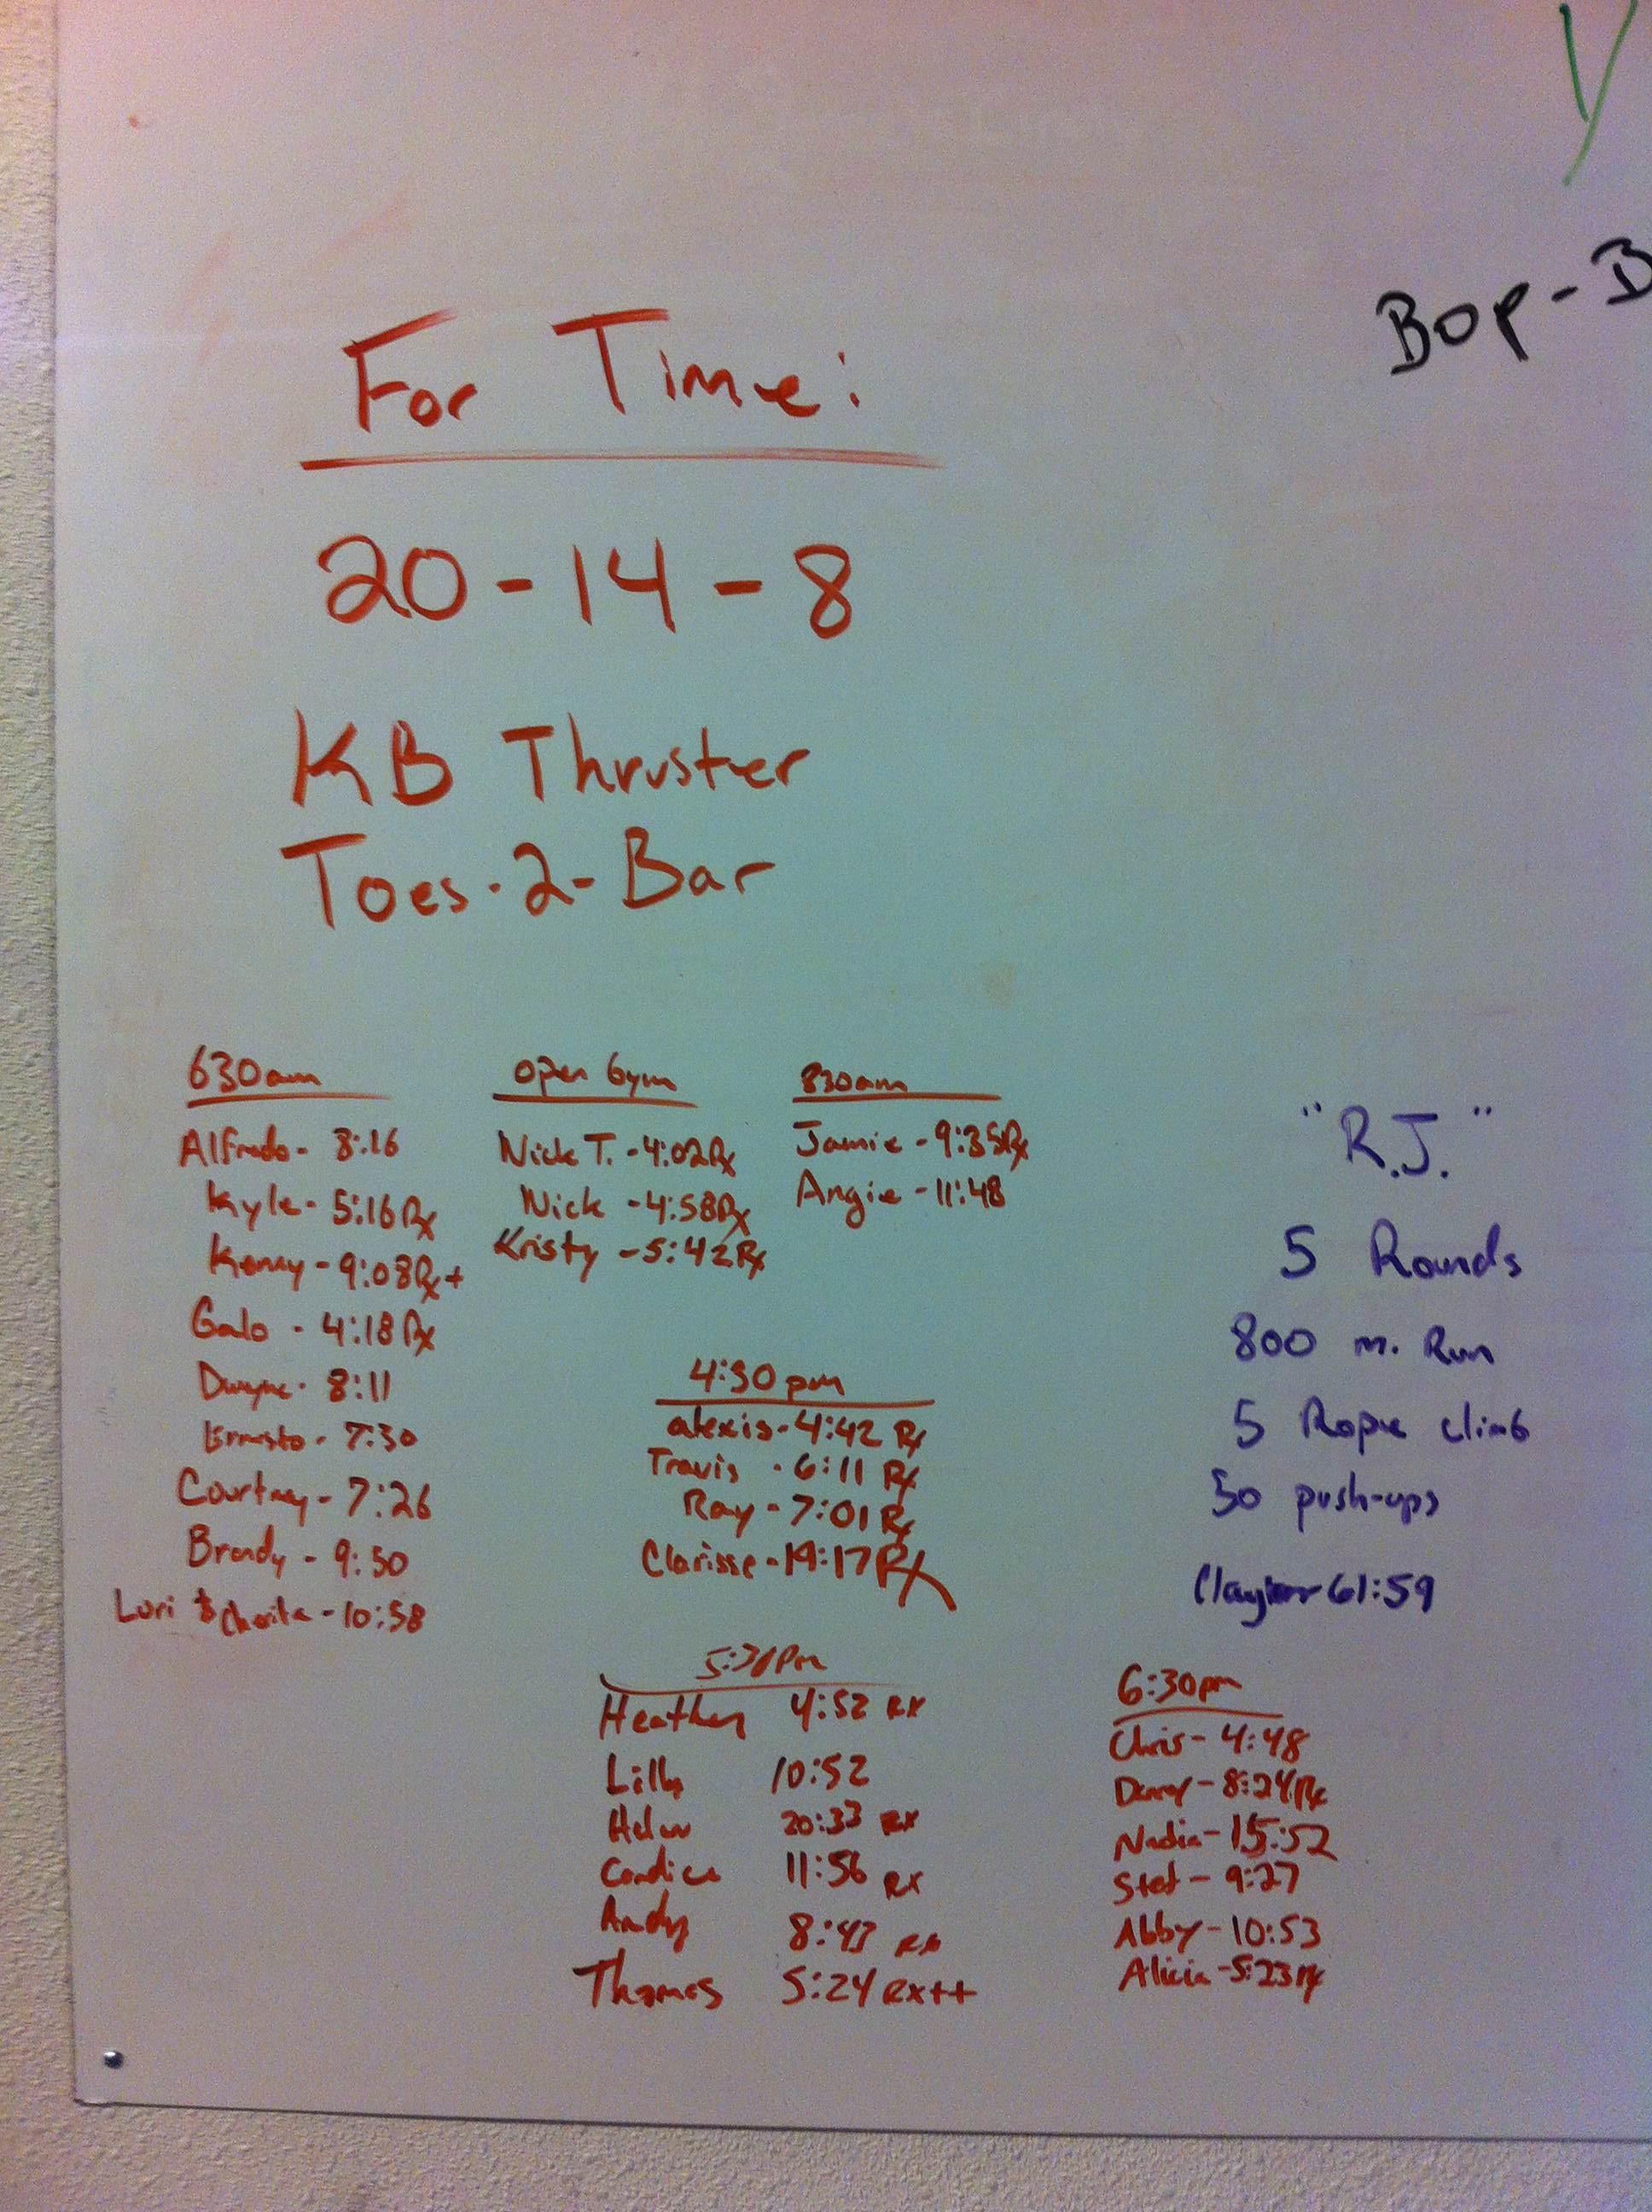 Bop-B
For Time:
20-14-8
KB Thruster
Toes-2-Bar
630am
Alfredo- 8:16
Kyle- 5:16 Rx
Kenny- 9:08 Rx+
Galo - 4:18 Rx
Dwayne- 8:11
Ernesto- 7:30
Courtney- 7:26
Brandy- 9:50
Lori & Charita -10:58
open Gym
Nick T. -4:02 Rx
Nick -4:58 Rx
Kristy -5:42 Rx
830am
Jamie -9:35 Rx
Angie -11:48
4:30 pm
alexis- 4:42 Rx
Travis - 6:11 Rx
Ray - 7:01 Rx
Clarisse - 19:17 Rx
"R.J."
5 Rounds
800 m. Run
5 Rope climb
50 push-ups
61:59
5:30Pm
Heather 4:52 RX
Lilly 10:52
Helen 20:33 RX
Candice 11:56 RX
Andy 8:43 RX
Thomas 5:24 RX++
6:30pm
Chris- 4:48
8:24 Rx
Nadia- 15:52
Stef- 9:27
Abby- 10:53
Alicia -5:23 Rx